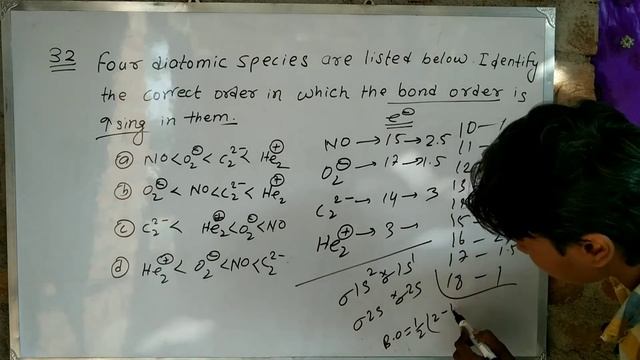 32 Four diatomic species are listed below. Identify
the correct order in which the bond order is
↑sing in them.
(a) NO < O₂⊖ < C₂²⁻ < He₂⊕
(b) O₂⊖ < NO < C₂²⁻ < He₂⊕
(c) C₂²⁻ < He₂⊕ < O₂⊖ < NO
(d) He₂⊕ < O₂⊖ < NO < C₂²⁻
e⊖
NO → 15 → 2.5
O₂⊖ → 17 → 1.5
C₂²⁻ → 14 → 3
He₂⊕ → 3 →
10 - 1
11 -
12
13
15
16 - 2
17 - 1.5
18 - 1
σ1s² σ*1s¹
σ2s σ*2s
B.O = 1/2 (2 - 1